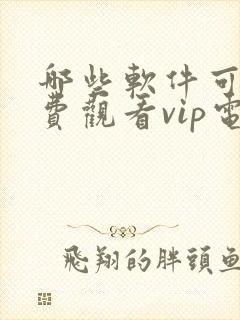 哪些軟件可
費觀看vip電
飛翔的胖頭魚